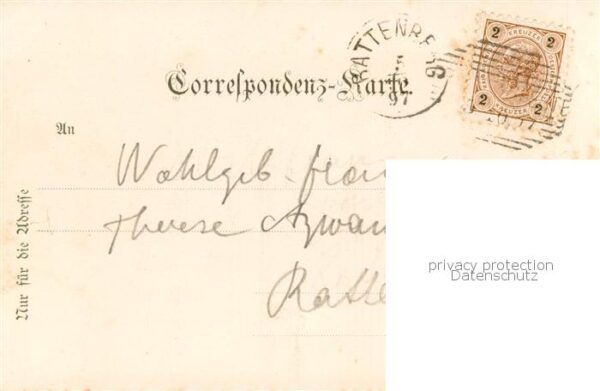 RATTENBERG
5
97
2 KREUZER 2
2 KREUZER 2
Correspondenz-Karte.
An
Wohlgeb. Frau
Therese
Ratte
Nur für die Adresse
privacy protection
Datenschutz